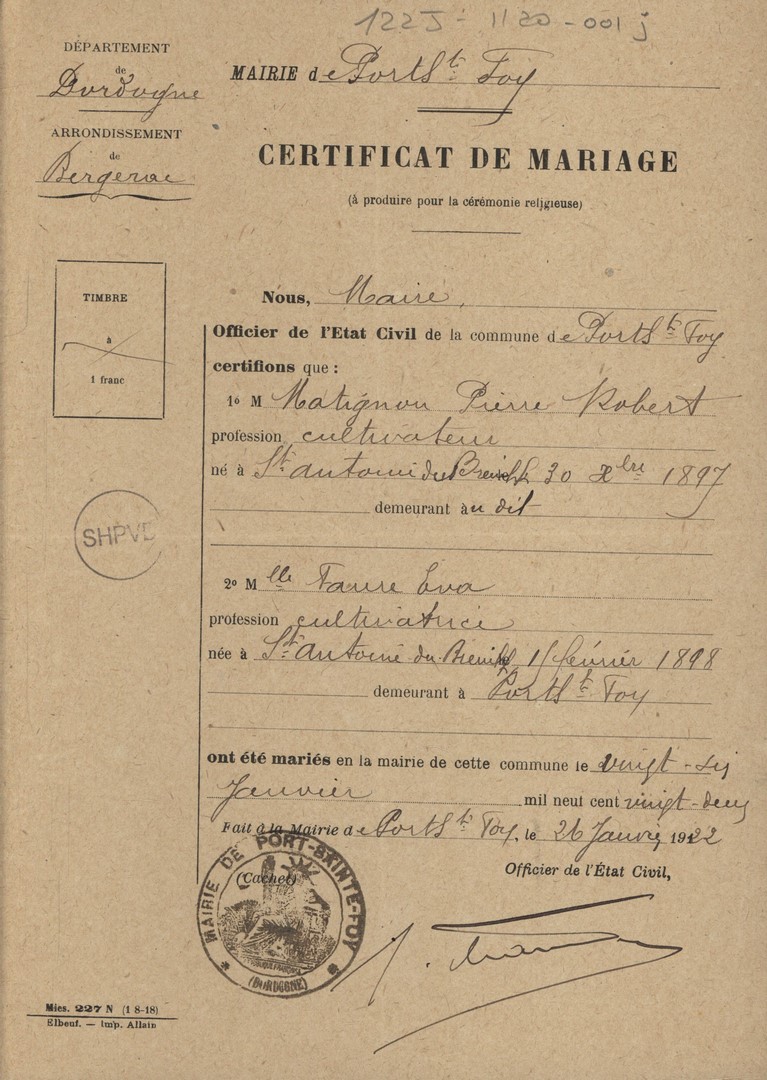 122J - 1120 - 001 j
DÉPARTEMENT
de
Dordogne
MAIRIE de Port Ste Foy
ARRONDISSEMENT
de
Bergerac
CERTIFICAT DE MARIAGE
(à produire pour la cérémonie religieuse)
TIMBRE
à
1 franc
Nous, Maire,
Officier de l'Etat Civil de la commune de Port Ste Foy
certifions que :
1o M Matignon Pierre Robert
profession cultivateur
né à St Antoine du Breuilh 30 Xbre 1897
demeurant au dit
SHPVD
2o Mlle Faure Eva
profession cultivatrice
née à St Antoine du Breuilh, février 1898
demeurant à Port Ste Foy
ont été mariés en la mairie de cette commune le vingt-six
Janvier mil neuf cent vingt-deux
Fait à la Mairie de Port Ste Foy, le 26 Janvier 1922
Officier de l'État Civil,
(Cachet)
MAIRIE DE PORT-SAINTE-FOY
(DORDOGNE)
Mies. 227 N (1 8-18)
Elbeuf. — Imp. Allain